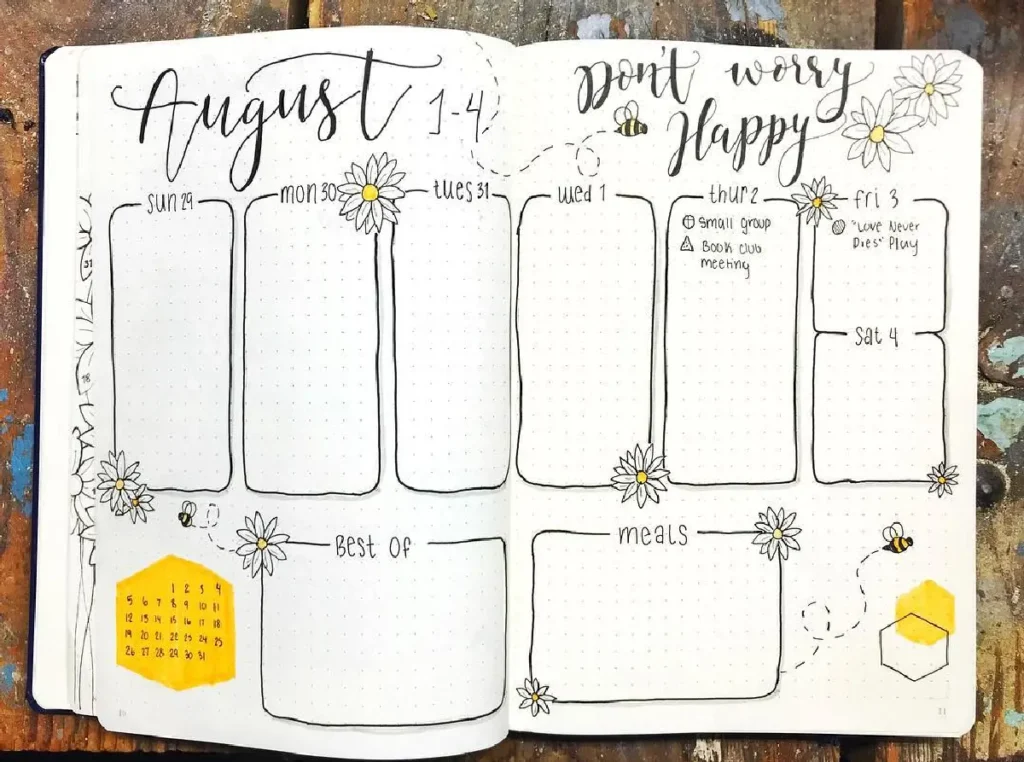 August 1-4
Don't worry
Happy
sun 29
mon 30
tues 31
wed 1
thur 2
small group
Book club
meeting
fri 3
"Love Never
Dies" Play
sat 4
Best Of
meals
1 2 3 4
5 6 7 8 9 10 11
12 13 14 15 16 17 18
19 20 21 22 23 24 25
26 27 28 29 30 31